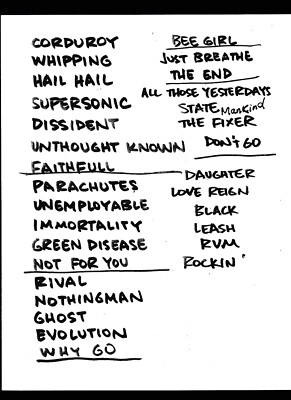 CORDUROY
WHIPPING
HAIL HAIL
SUPERSONIC
DISSIDENT
UNTHOUGHT KNOWN
FAITHFULL
PARACHUTES
UNEMPLOYABLE
IMMORTALITY
GREEN DISEASE
NOT FOR YOU
RIVAL
NOTHINGMAN
GHOST
EVOLUTION
WHY GO
BEE GIRL
JUST BREATHE
THE END
ALL THOSE YESTERDAYS
STATE Mankind
THE FIXER
DON'T GO
DAUGHTER
LOVE REIGN
BLACK
LEASH
RVM
ROCKIN'